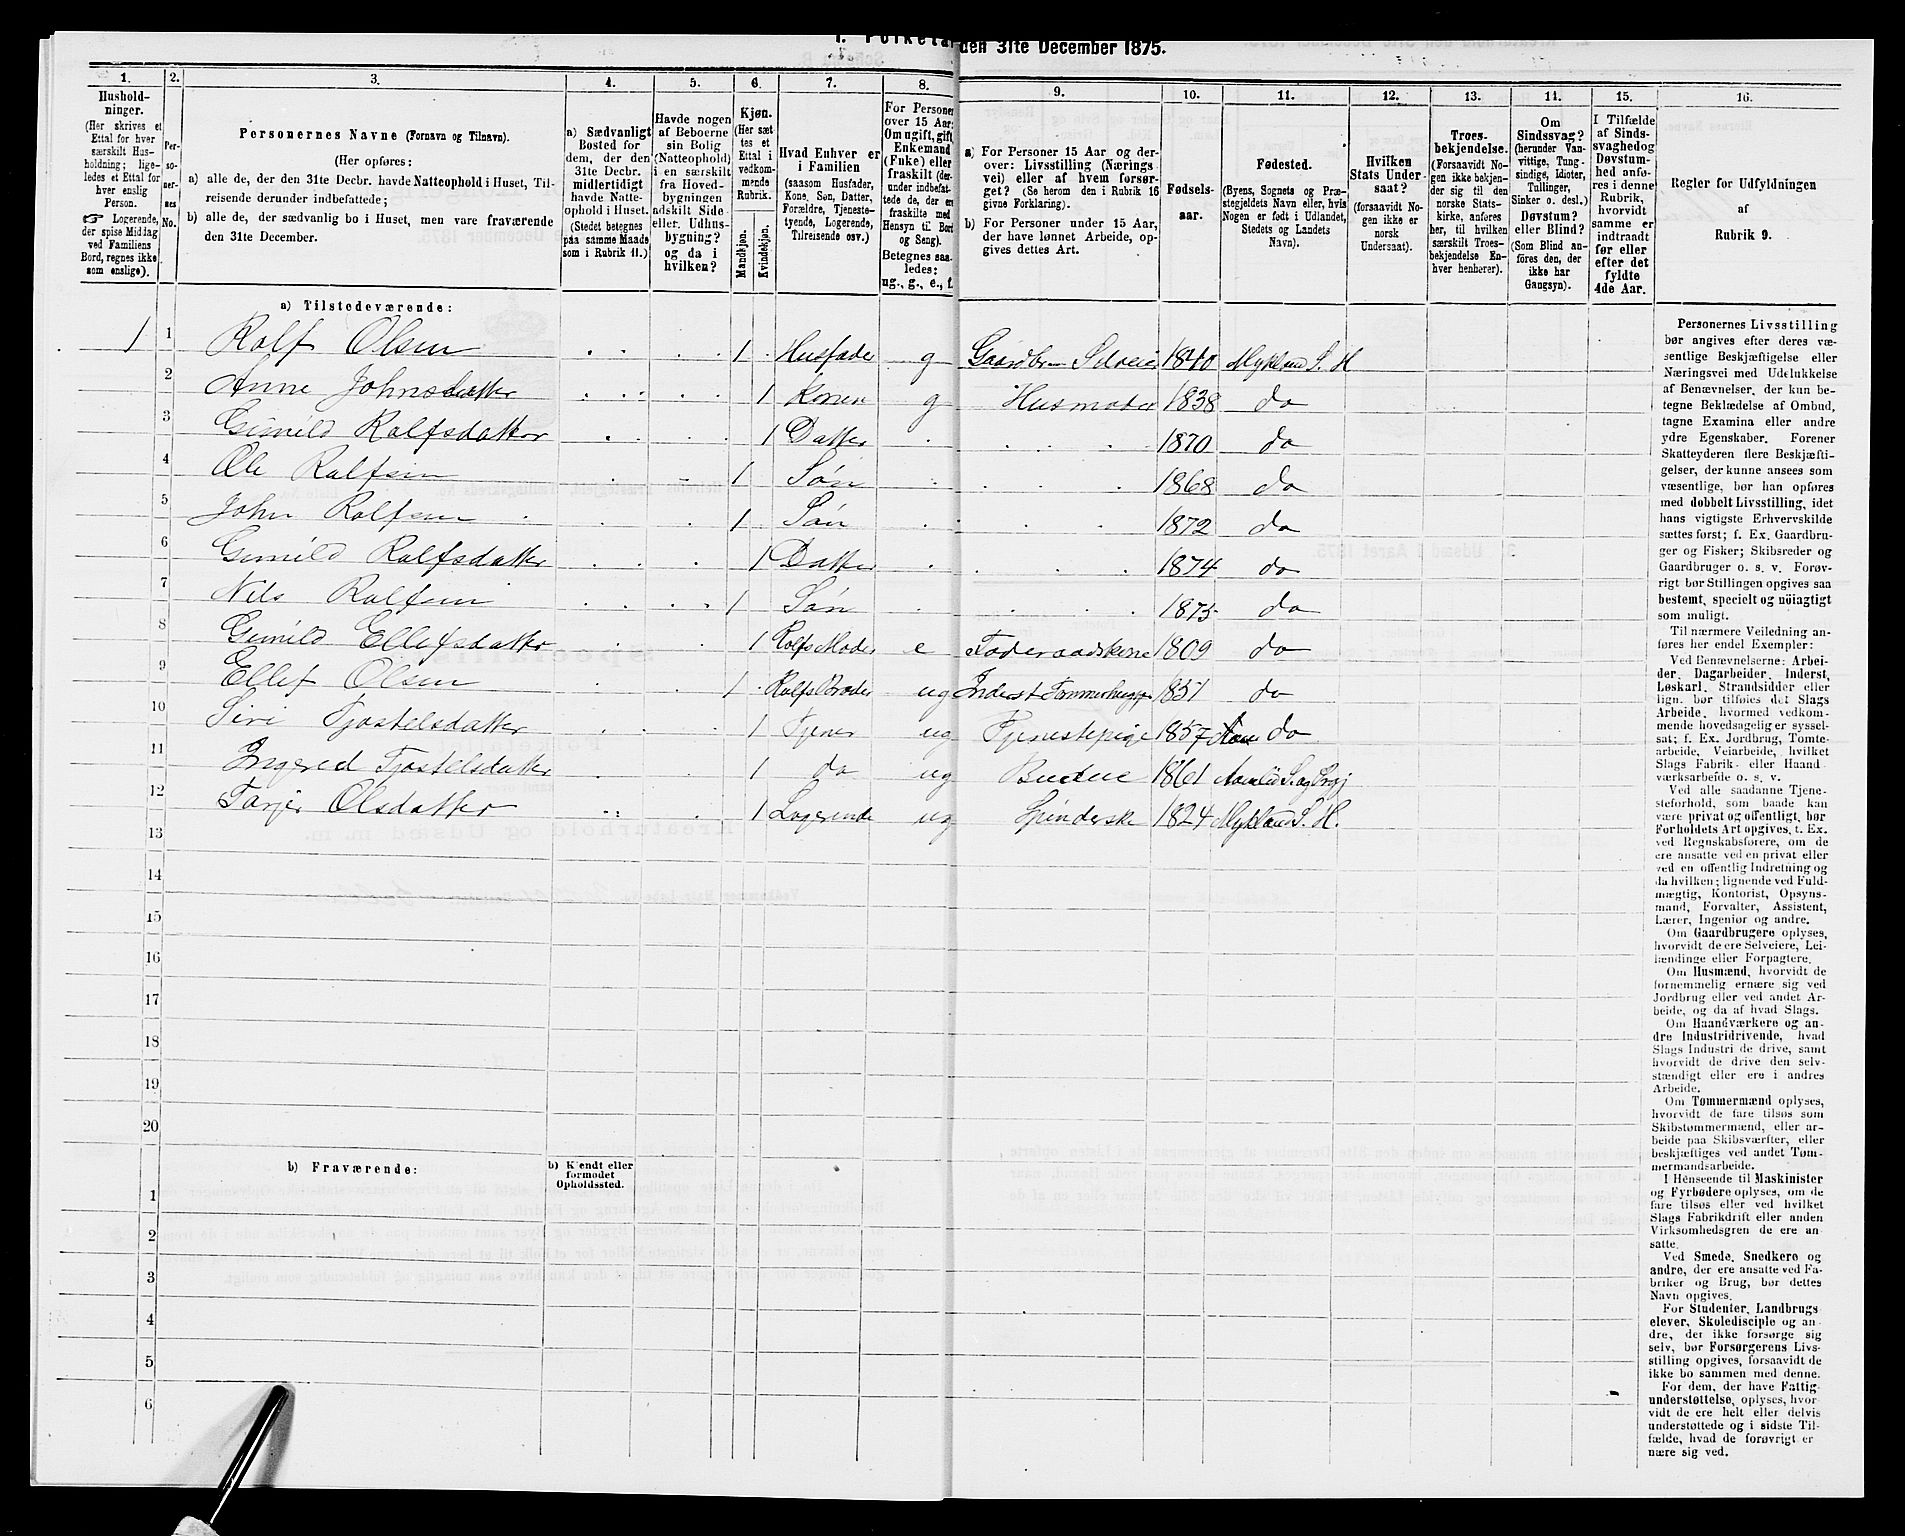 1. Folketæ
den 31te December 1875.
1. 2. 3. 4. 5. 6. 7. 8. 9. 10. 11. 12. 13. 14. 15. 16.
Hushold-
ninger.
(Her skrives et
Ettal for hver
særskilt Hus-
holdning; lige-
ledes et Ettal for
hver enslig
Person.
☞ Logerende,
der spise Middag
ved Familiens
Bord, regnes ikke
som enslige).
Per-
so-
ner-
nes
No.
Personernes Navne (Fornavn og Tilnavn).
(Her opføres:
a) alle de, der den 31te Decbr. havde Natteophold i Huset, Til-
reisende derunder indbefattede;
b) alle de, der sædvanlig bo i Huset, men vare fraværende
den 31te December.
a) Sædvanligt
Bosted for
dem, der den
31te Decbr.
midlertidigt
havde Natte-
ophold i Huset.
(Stedet betegnes
paa samme Maade
som i Rubrik 11.)
Havde nogen
af Beboerne
sin Bolig
(Natteophold)
i en særskilt
fra Hoved-
bygningen
adskilt Side-
eller Udhus-
bygning?
og da i
hvilken?
Kjøn.
(Her sæt-
tes et
Ettal i
vedkom-
mende
Rubrik.
Mandkjøn.
Kvindekjøn.
Hvad Enhver er
i Familien
(saasom Husfader,
Kone, Søn, Datter,
Forældre, Tjeneste-
tyende, Logerende,
Tilreisende osv.)
For Personer
over 15 Aar:
Om ugift, gift,
Enkemand
(Enke) eller
fraskilt (der-
under indbefat-
tede de, der ere
fraskilte med
Hensyn til Bord
og Seng).
Betegnes saa-
ledes:
ug., g., e., f.
a) For Personer 15 Aar og der-
over: Livsstilling (Nærings-
vei) eller af hvem forsør-
get? (Se herom den i Rubrik 16
givne Forklaring).
b) For Personer under 15 Aar,
der have lønnet Arbeide, op-
gives dettes Art.
Fødsels-
aar.
Fødested.
(Byens, Sognets og Præ-
stegjeldets Navn eller, hvis
Nogen er født i Udlandet,
Stedets og Landets
Navn).
Hvilken
Stats Under-
saat?
(forsaavidt No-
gen ikke er
norsk
Undersaat).
Troes-
bekjendelse.
(Forsaavidt No-
gen ikke bekjen-
der sig til den
norske Stats-
kirke, anføres
her, til hvilken
særskilt Troes-
bekjendelse En-
hver henhører).
Om
Sindssvag?
(herunder Van-
vittige, Tung-
sindige, Idioter,
Tullinger,
Sinker o. desl.)
Døvstum?
eller Blind?
(Som Blind an-
føres den, der
ikke har
Gangsyn).
I Tilfælde
af Sinds-
svaghed og
Døvstum-
hed anfø-
res i denne
Rubrik,
hvorvidt
samme er
indtraadt
før eller
efter det
fyldte
4de Aar.
Regler for Udfyldningen
af
Rubrik 9.
a) Tilstedeværende:
1 1 Rolf Olsen 1 Husfader g Gaardbr Selveier 1840 Mykland S. H
2 Anne Johnsdatter 1 Konen g Husmoder 1838 do
3 Gunild Rolfsdatter 1 Datter 1870 do
4 Ole Rolfsen 1 Søn 1868 do
5 John Rolfsen 1 Søn 1872 do
6 Gunild Rolfsdatter 1 Datter 1874 do
7 Nils Rolfsen 1 Søn 1875 do
8 Gunild Ellefsdatter 1 Rolfs Moder e Føderaadskone 1809 do
9 Ellef Olsen 1 Rolfs Broder ug Inderst Tømmerhugger 1851 do
10 Siri Tjostelsdatter 1 Tjener ug Tjenestepige 1857 do
11 Ingerid Tjostelsdatter 1 do ug Budeie 1861 Aamlid S. og Prgj
12 Tarjer Olsdatter 1 Logerende ug Spinderske 1824 Mykland S. H.
13
14
15
16
17
18
19
20
b) Fraværende:
b) Kjendt eller
formodet
Opholdssted.
1
2
3
4
5
6
Personernes Livsstilling
bør angives efter deres væ-
sentlige Beskjæftigelse eller
Næringsvei med Udelukkelse
af Benævnelser, der kun be-
tegne Beklædelse af Ombud,
tagne Examina eller andre
ydre Egenskaber. Forener
Skatteyderen flere Beskjæfti-
gelser, der kunne ansees som
væsentlige, bør han opføres
med dobbelt Livsstilling, idet
hans vigtigste Erhvervskilde
sættes først; f. Ex. Gaardbru-
ger og Fisker; Skibsreder og
Gaardbruger o. s. v. Forøv-
rigt bør Stillingen opgives saa
bestemt, specielt og nöiagtigt
som muligt.
Til nærmere Veiledning an-
føres her endel Exempler:
Ved Benævnelserne: Arbei-
der, Dagarbeider, Inderst,
Løskarl, Strandsidder eller
lign. bør tilføies det Slags
Arbeide, hvormed vedkom-
mende hovedsagelig er syssel-
sat; f. Ex. Jordbrug, Tomte-
arbeide, Veiarbeide, hvilket
Slags Fabrik- eller Haand-
værksarbeide o. s. v.
Ved alle saadanne Tjene-
steforhold, som baade kan
være privat og offentligt, bør
Forholdets Art opgives, t. Ex.
ved Regnskabsførere, om de
ere ansatte ved en privat eller
ved en offentlig Indretning og
da hvilken; lignende ved Fuld-
mægtig, Kontorist, Opsyns-
mand, Forvalter, Assistent,
Lærer, Ingeniør og andre.
Om Gaardbrugere oplyses,
hvorvidt de ere Selveiere, Lei-
lændinge eller Forpagtere.
Om Husmænd, hvorvidt de
fornemmelig ernære sig ved
Jordbrug eller ved andet Ar-
beide, og da af hvad Slags.
Om Haandværkere og an-
dre Industridrivende, hvad
Slags Industri de drive, samt
hvorvidt de drive den selv-
stændigt eller ere i andres
Arbeide.
Om Tømmermænd oplyses,
hvorvidt de fare tilsøs som
Skibstømmermænd, eller ar-
beide paa Skibsværfter, eller
beskjæftiges ved andet Tøm-
mermandsarbeide.
I Henseende til Maskinister
og Fyrbødere oplyses, om de
fare tilsøs eller ved hvilket
Slags Fabrikdrift eller anden
Virksomhedsgren de ere an-
satte.
Ved Smede, Snedkere og
andre, der ere ansatte ved Fa-
briker og Brug, bør dettes
Navn opgives.
For Studenter, Landbrugs-
elever, Skoledisciple og an-
dre, der ikke forsørge sig
selv, bør Forsørgerens Livs-
stilling opgives, forsaavidt de
ikke bo sammen med denne.
For dem, der have Fattig-
understøttelse, oplyses, hvor-
vidt de ere helt eller delvis
understøttede og i sidste Til-
fælde, hvad de forøvrigt er-
nære sig ved.